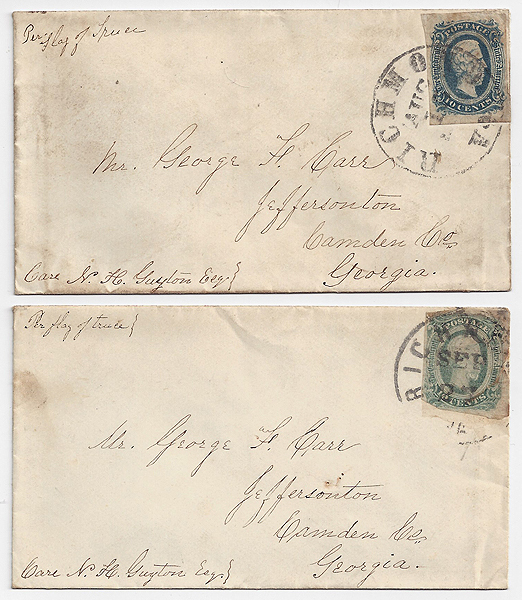 Per flag of Truce
POSTAGE
The Confederate States of America
10 CENTS
RICHMO
AUG
Mr. George F. Carr
Jeffersonton
Camden Co.
Georgia.
Care N. H. Guyton Esq.
Per flag of truce
POSTAGE
CENTS
RICH
SEP
Mr. George F. Carr
Jeffersonton
Camden Co.
Georgia.
Care N. H. Guyton Esq.